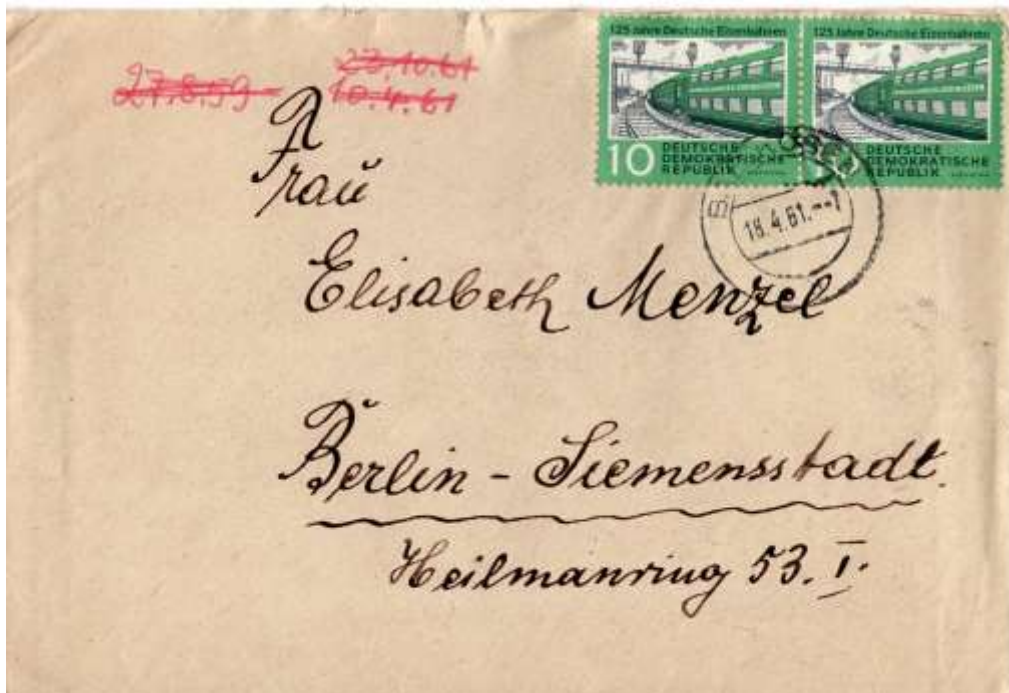 27.8.59
23.10.61
10.4.61
125 Jahre Deutsche Eisenbahnen
10 DEUTSCHE
DEMOKRATISCHE
REPUBLIK
125 Jahre Deutsche Eisenbahnen
DEUTSCHE
DEMOKRATISCHE
REPUBLIK
18.4.61.--7
Frau
Elisabeth Menzel
Berlin - Siemensstadt.
Heilmannring 53. I.